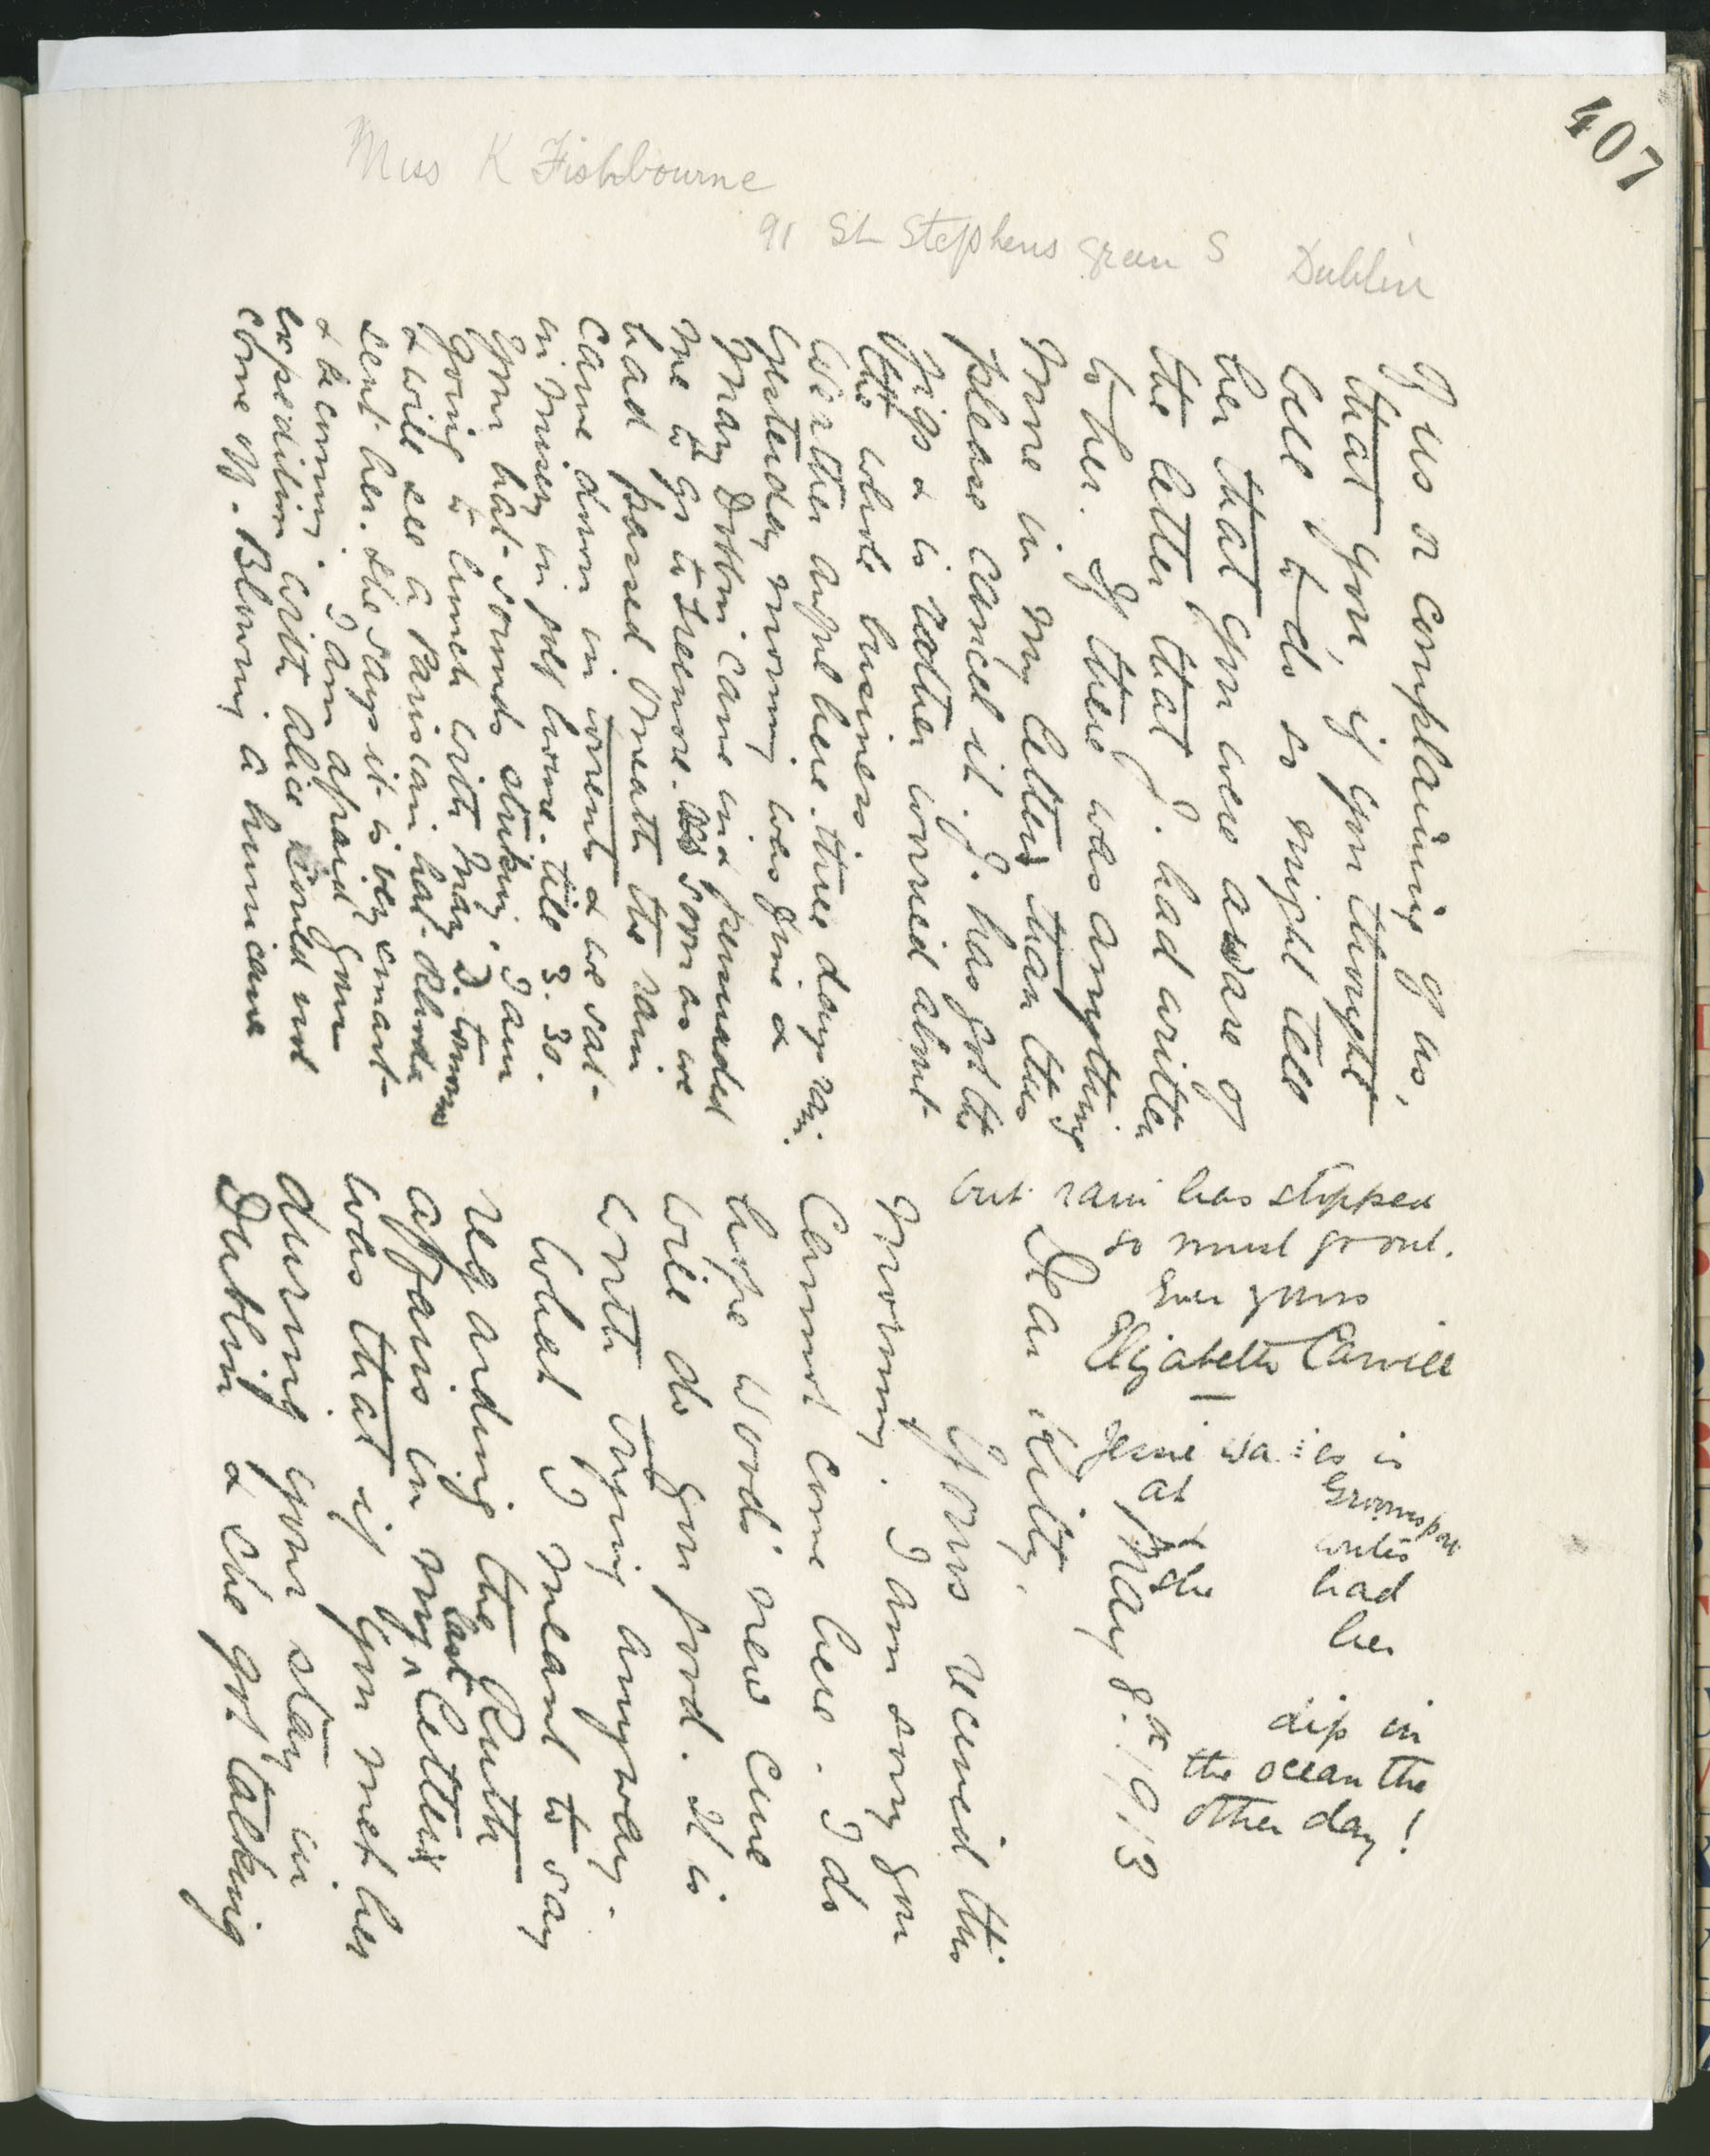 407
Miss K Fishbourne
91 St Stephens green S Dublin
May 8th 1913
Dear Kitty,
Yours received this
morning. I am sorry you
cannot come here. I do
hope Woods' new cure
will do you good. It is
worth trying anyway.
What I meant to say
regarding the Ruth
affairs in my last letter
was that if you met her
during your stay in
Dublin & she got talking
of us or complaining of us,
that you, if you thought
well to do so might tell
her that you were aware of
the letter that J. had written
to her. If there was anything
more in my letter than this
please cancel it. J. has got the
pigs & is rather worried about
the whole business
Weather awful here. three days rain.
yesterday morning was fine &
Mary Dobbin came in & persuaded
me to go to Greenore. As soon as we
had passed Omeath the rain
came down in torrents & we sat
in misery in golf house till 3.30.
Your hat sounds striking. I am
going to lunch with Mary D. tomorrow
& will see a Parisian hat Rhoda
sent her. She says it is very smart
& becoming. I am afraid your
expedition with Alice would not
come off. Blowing a hurricane
but rain has stopped
so must go out.
Ever yours
Elizabeth Carvill
Jessie is
at Groomsport
writes
she had
her
dip in
the ocean the
other day!